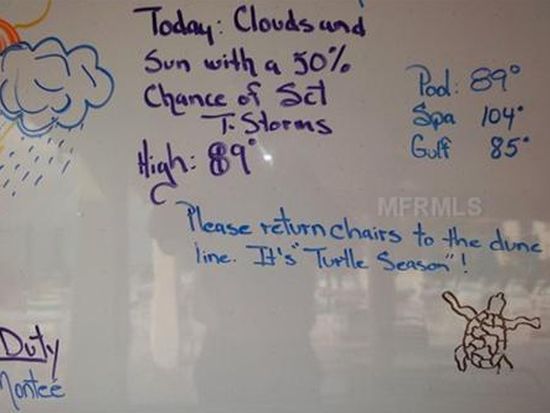 Today: Clouds and
Sun with a 50%
Chance of Sct
T-Storms
High: 89°
C
Pool: 89°
Spa 104°
Gulf 85°
MFRMLS
Please return chairs to the dune
line. It's "Turtle Season"!
Duty
Montee